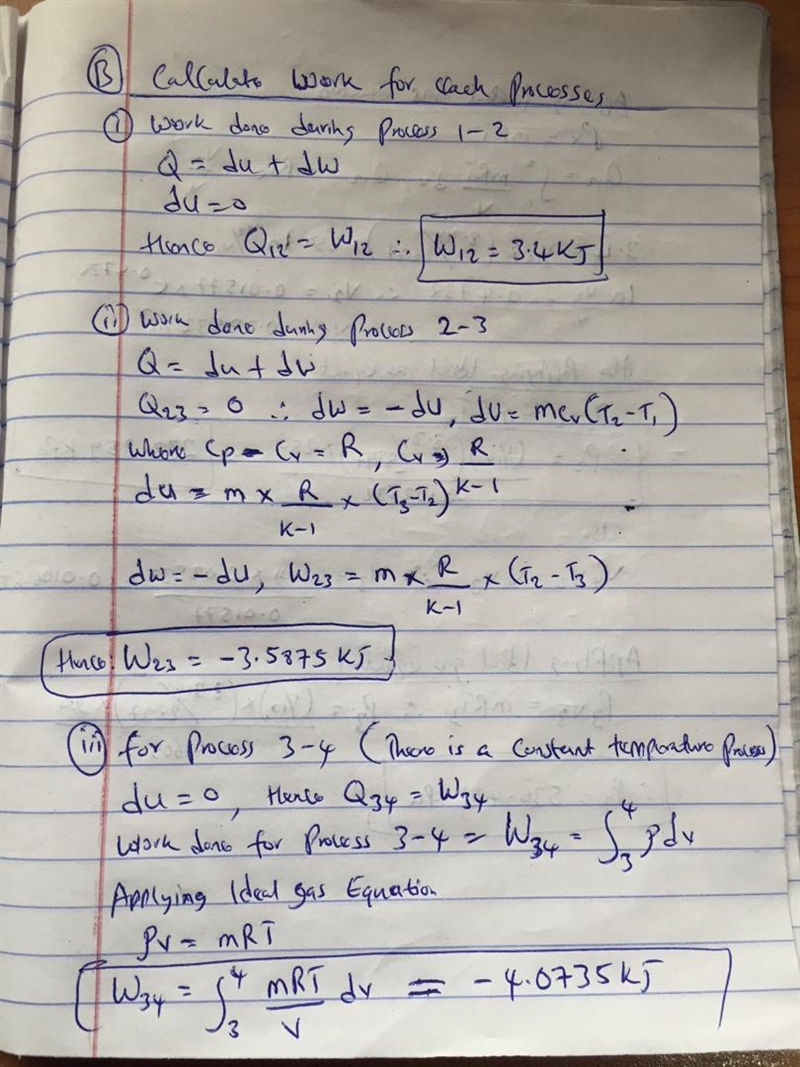 B Calculate Work for each Processes
i) Work done during Process 1-2
Q = du + dw
du = 0
Hence Q12 = W12 ∴ W12 = 3.4KJ
ii) Work done during Process 2-3
Q = du + dw
Q23 = 0 ∴ dw = -dU, dU = mcv(T2-T1)
Where Cp - Cv = R, Cv = R/K-1
du = m x R/K-1 x (T3-T2)
dw = -dU, W23 = m x R/K-1 x (T2-T3)
Hence: W23 = -3.5875 KJ
iii) for Process 3-4 (There is a constant temperature Process)
du = 0, Hence Q34 = W34
Work done for Process 3-4 = W34 = ∫₃⁴ Pdv
Applying Ideal gas Equation
PV = mRT
W34 = ∫₃⁴ mRT/V dv = -4.0735KJ